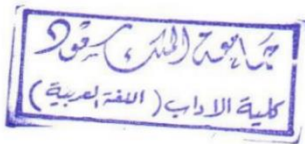 جامعة الملك سعود
كلية الاداب (اللغة العربية)